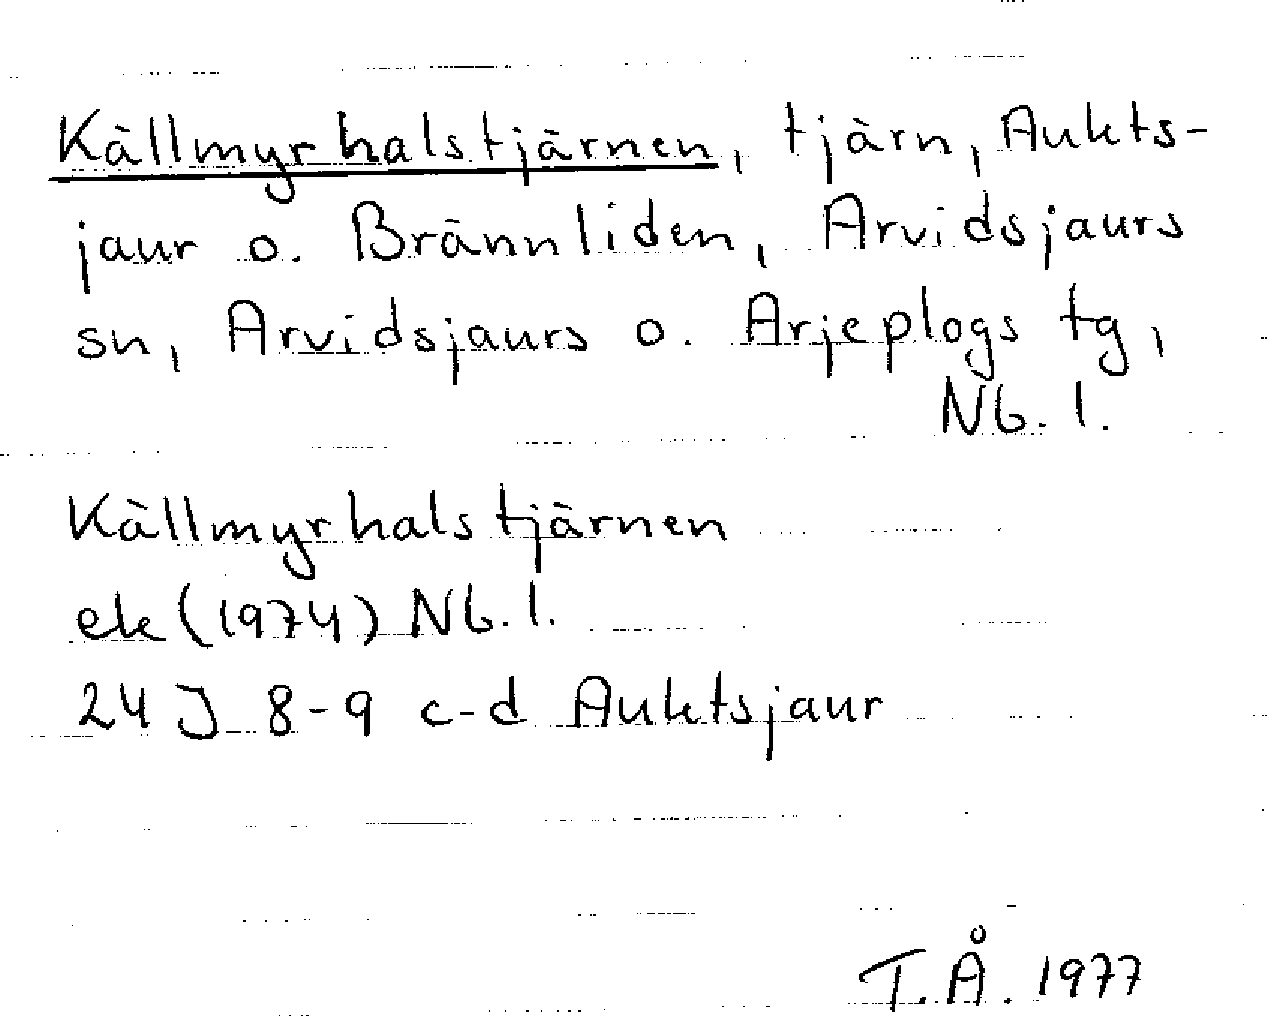 Källmyrhalstjärnen, tjärn, Aukts-
jaur o. Brännliden, Arvidsjaurs
sn, Arvidsjaurs o. Arjeplogs tg,
Nb. l.
Källmyrhalstjärnen
ek (1974) Nb. l.
24 J 8-9 c-d Auktsjaur
T.Å. 1977